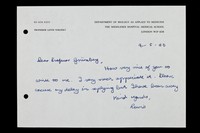 DEPARTMENT OF BIOLOGY AS APPLIED TO MEDICINE
THE MIDDLESEX HOSPITAL MEDICAL SCHOOL
PROFESSOR LEWIS WOLPERT
LONDON W1P 6DB
Dear Professor Grüneberg,
How very nice of you to
write to me. I very much appreciated it. Please
excuse my delay in replying but I have been away
Kind regards,
Lewis